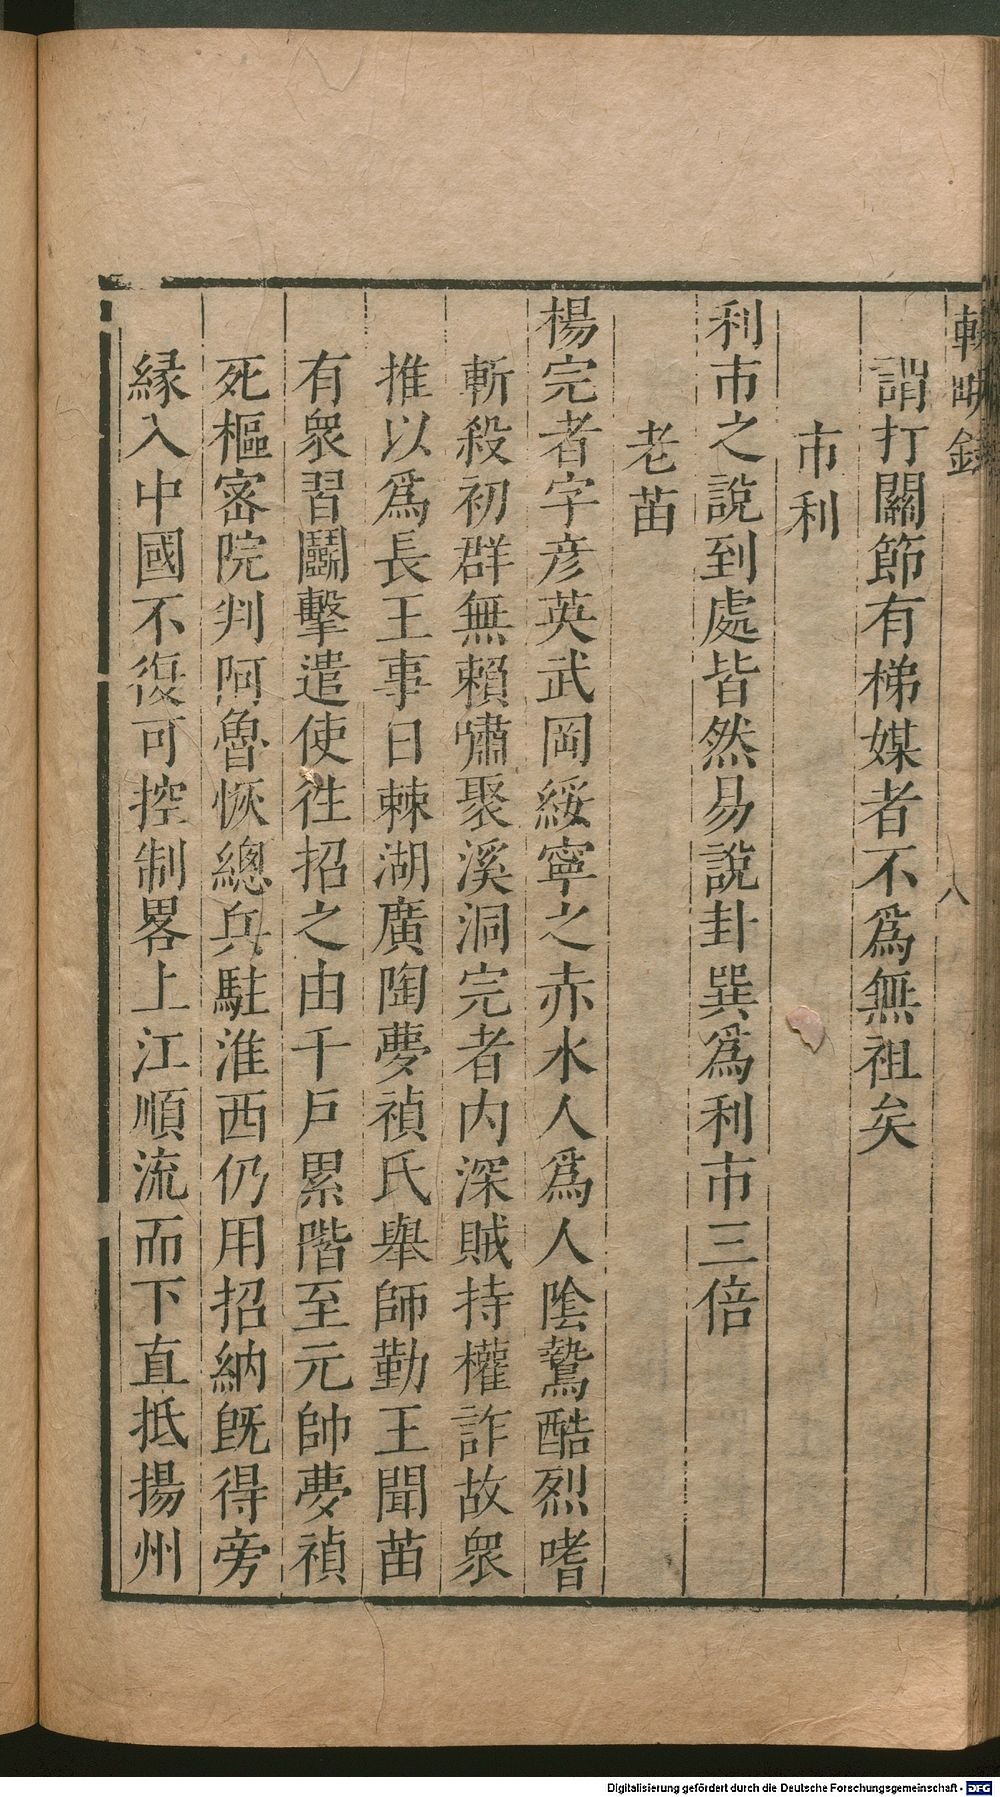 輟畊錄
八
謂打關節有梯媒者不爲無祖矣
市利
利市之說到處皆然易說卦巽爲利市三倍
老苗
楊完者字彦英武岡綏寧之赤水人爲人陰鷙酷烈嗜
斬殺初群無賴嘯聚溪洞完者内深賊持權詐故衆
推以爲長王事日棘湖廣陶夢禎氏舉師勤王聞苗
有衆習鬬擊遣使徃招之由千戶累階至元帥夢禎
死樞宻院判阿魯恢總兵駐淮西仍用招納旣得旁
縁入中國不復可控制畧上江順流而下直抵揚州
Digitalisierung gefördert durch die Deutsche Forschungsgemeinschaft - DFG